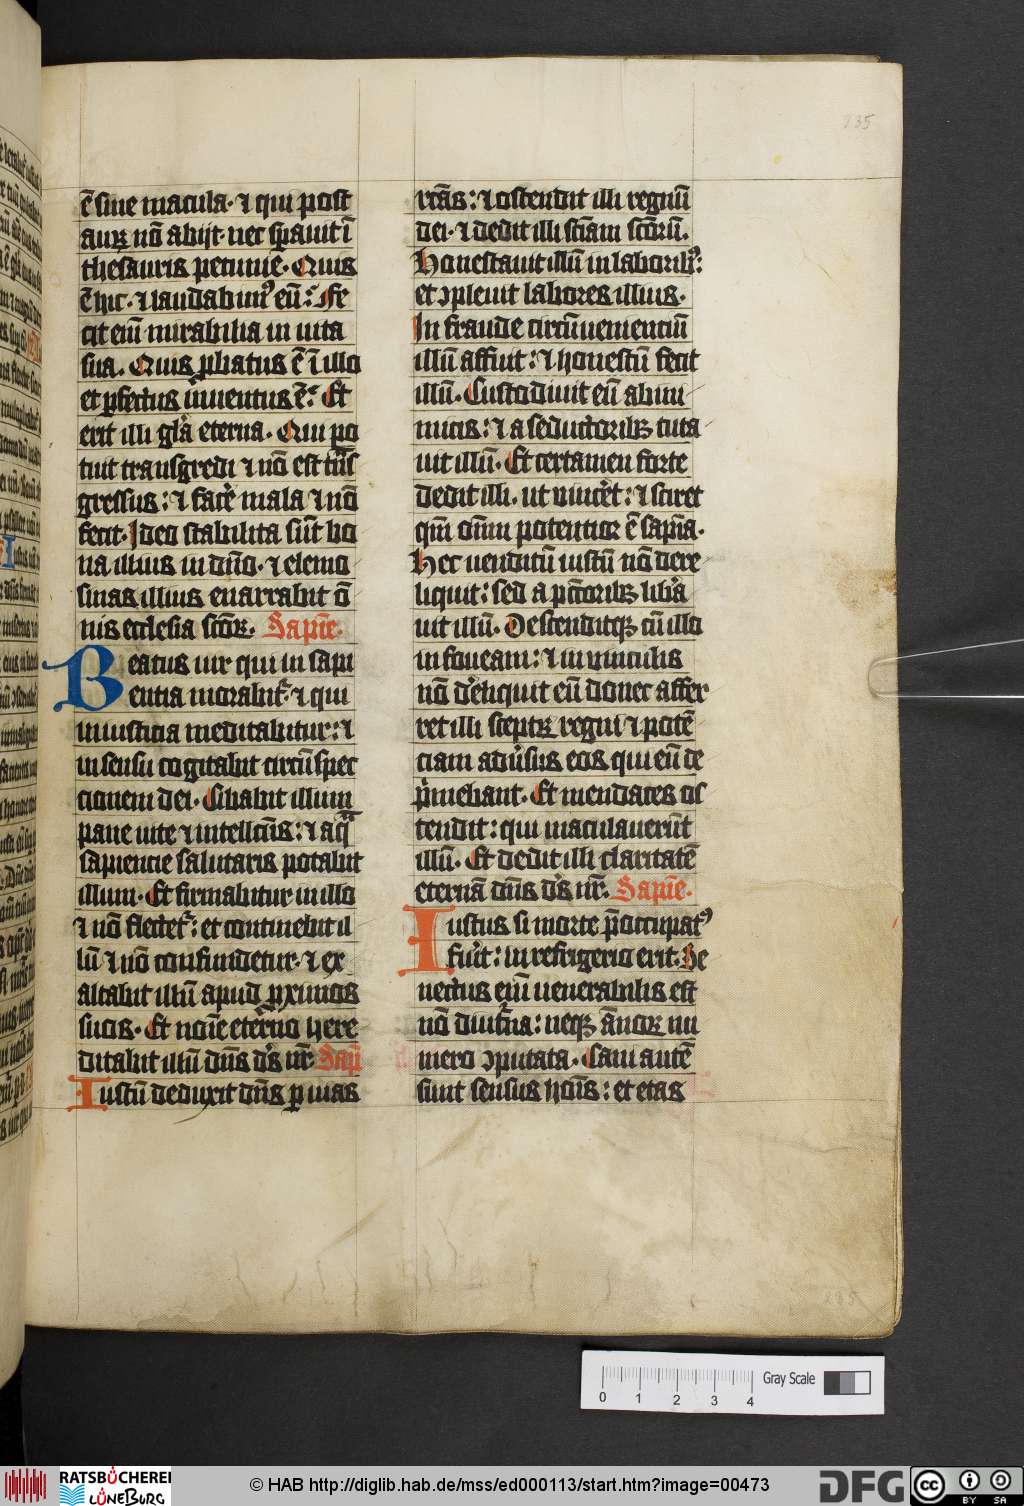 235
ē sine macula· ⁊ qui post
auꝝ nō abijt· nec sꝑauit ī
thesauris pecunie· Quis
ē hic· ⁊ laudabimꝰ eū: Fe
cit eni̅ mirabilia in uita
sua. Quis ꝓbatus ē ī illo
et ꝑfectus inuentus ē: Et
erit illi gl̅a eterna. Qui po
tuit transgredi ⁊ nō est tn̅s
gressus: ⁊ facꝰe mala ⁊ nō
fecit· Ideo stabilita sūt bo
na illius in dn̅o· ⁊ elemo
sinas illius enarrabit ō
nis ecclesia sc̅oꝝ. Sapīe·
Beatus uir qui in sapi
entia morabit᷑· ⁊ qui
in iusticia meditabitur: ⁊
in sensu cogitabit circū spec
tionem dei· Cibabit illum
pane uite ⁊ intellc̅us: ⁊ aq̅
sapiencie salutaris potabit
illum· Et firmabitur in illo
⁊ nō flectet᷑: et continebit il
lū ⁊ nō confundetur· ⁊ ex
altabit illū apud ꝓximos
suos· Et noīe eterno here
ditabit illū dn̅s d̅s nr̅ Sapī
Iustū deduxit dn̅s ꝑ uias
rectas: ⁊ ostendit illi regnū
dei· ⁊ dedit illi sc̅iam sc̅orū.
Honestauit illū in laboribꝰ:
et ↄpleuit labores illius·
In fraude circūuenienciū
illū affuit: ⁊ honestū fecit
illū· Custodiuit eū ab ini
micis: ⁊ a seductoribꝫ tuta
uit illū· Et certamen forte
dedit illi· ut uincꝰet: ⁊ sciret
qm̅ omī̅ potentior ē sapīa·
Hec uenditū iustū nō dere
liquit: sed a pc̅toribꝫ libꝰa
uit illū· Descenditqꝫ cū illo
in foueam: ⁊ in uinculis
nō dꝰeliquit eū donec affer
ret illi sceptꝝ regni ⁊ potē
ciam aduꝰsus eos qui eū de
pͥmebant· Et mendaces os
tendit: qui maculauerūt
illū· Et dedit illi claritatē
eternā dn̅s d̅s nr̅. Sapīe·
Iustus si morte p̅occupatꝰ
fuꝰit: in refrigerio erit· Se
nectus eni̅ uenerabilis est
nō diut̅na: neqꝫ ānoꝝ nu
mero ↄputata· Cani autē
sunt sensus ho̅is: et etas
Gray Scale
0 1 2 3 4
RATSBÜCHEREI
LÜNEBURG
© HAB http://diglib.hab.de/mss/ed000113/start.htm?image=00473
DFG
CC BY SA